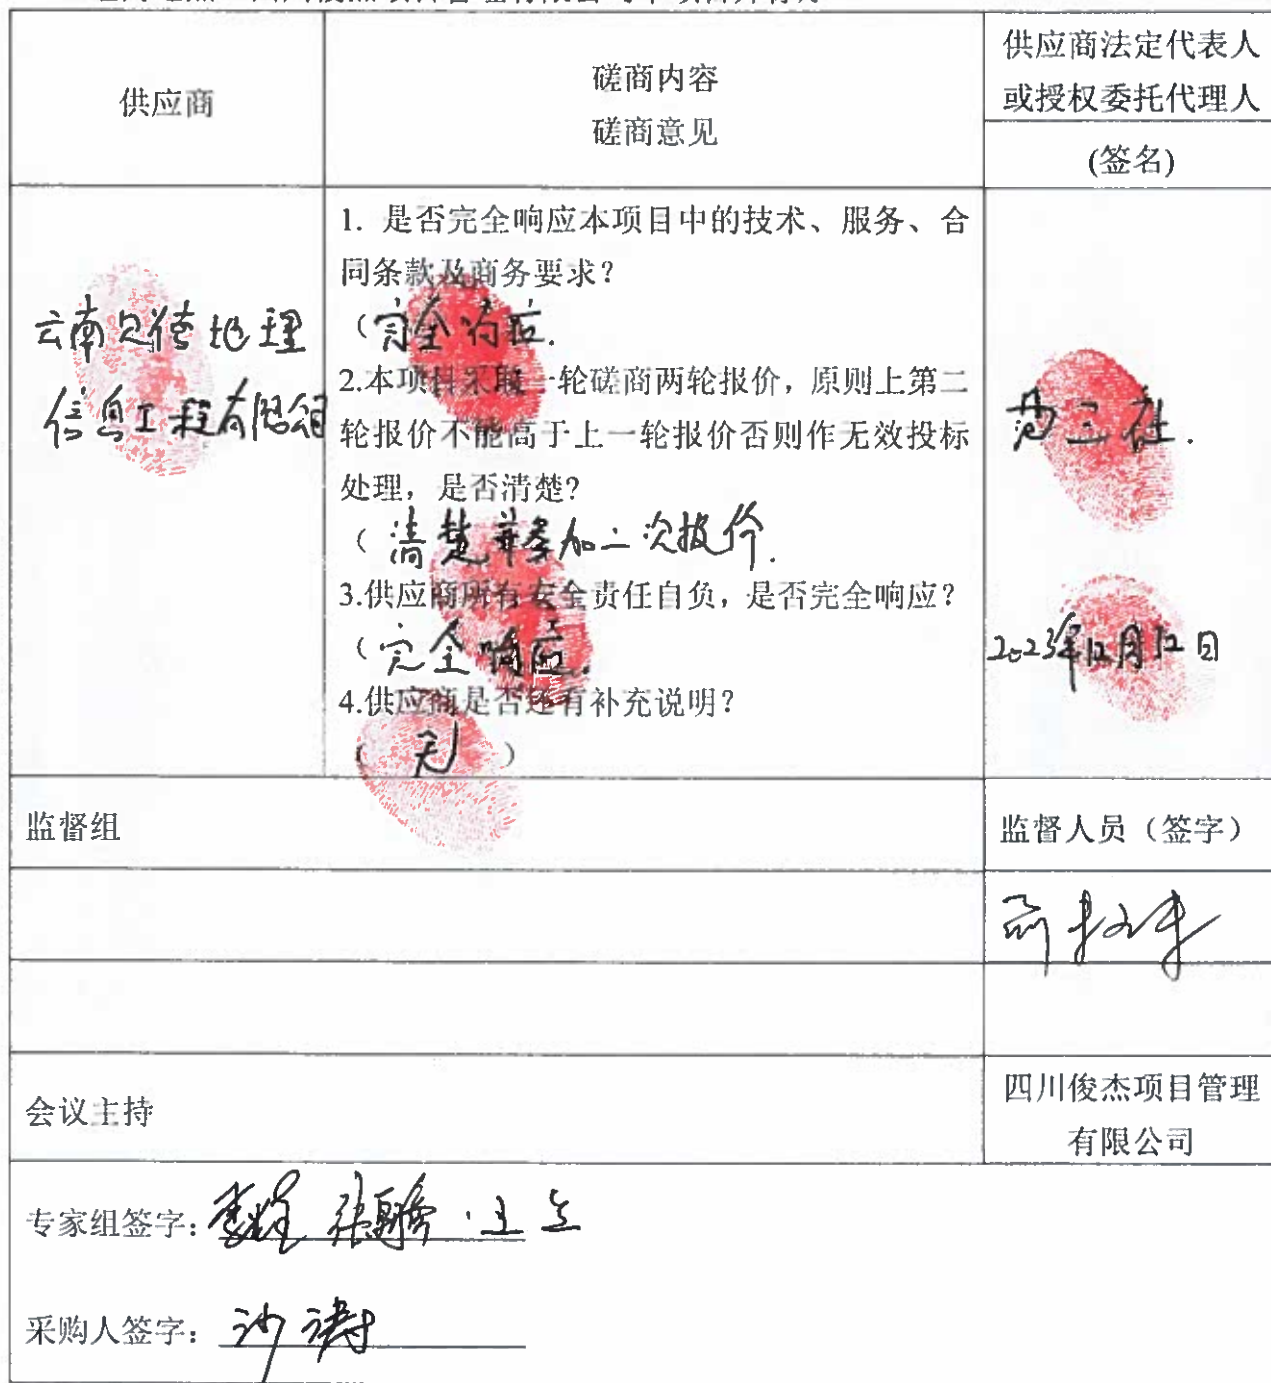 供应商
磋商内容
磋商意见
供应商法定代表人
或授权委托代理人
(签名)
云南 地理
信息工程有限公司
1. 是否完全响应本项目中的技术、服务、合
同条款及商务要求?
(完全响应.
2.本项目采取一轮磋商两轮报价，原则上第二
轮报价不能高于上一轮报价否则作无效投标
处理，是否清楚?
(清楚并参加二次报价.
3.供应商所有安全责任自负，是否完全响应?
(完全响应.
4.供应商是否还有补充说明?
( 无 )
2023年12月12日
监督组
监督人员（签字）
会议主持
四川俊杰项目管理
有限公司
专家组签字:
采购人签字: 沙涛